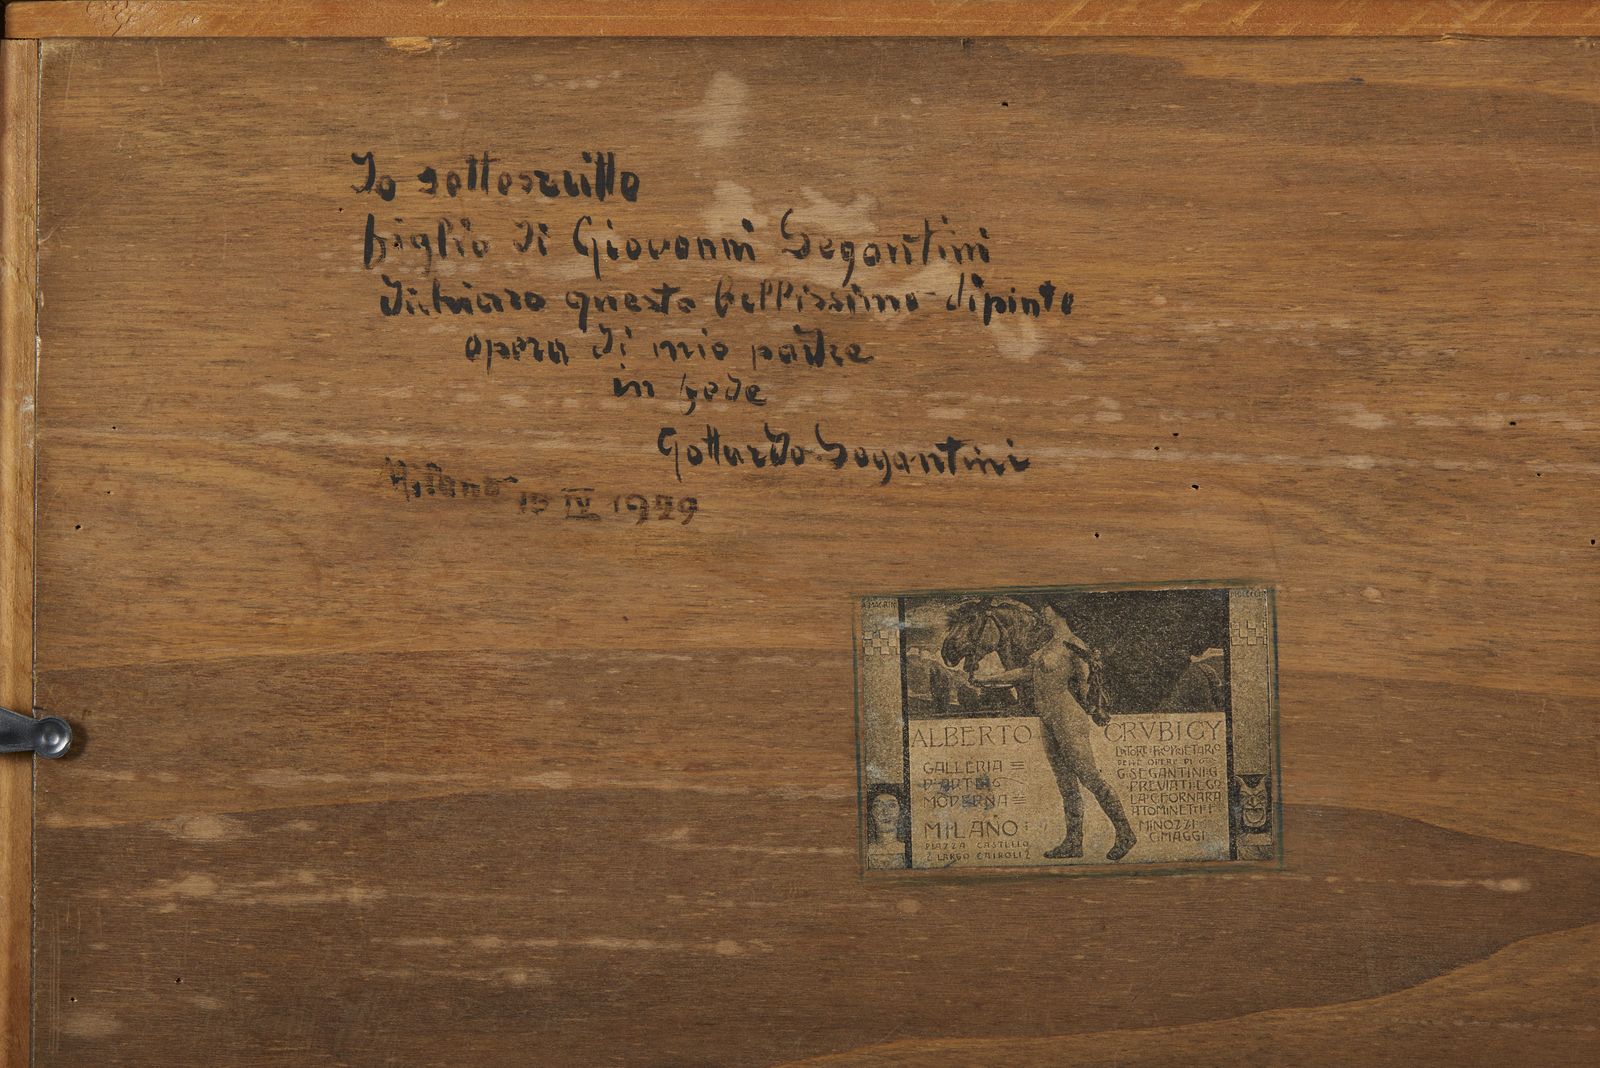 Io sottoscritto
figlio di Giovanni Segantini
dichiaro questo bellissimo dipinto
opera di mio padre
in fede
Gottardo Segantini
Milano 15 IV 1949
ALBERTO CRVBICY
GALLERIA
D'ARTE
MODERNA
MILANO
PIAZZA CASTELLO
2 LARGO CAIROLI 2
EDITORE PROPRIETARIO
DELLE OPERE DI
G. SEGANTINI G.
PREVIATI E. GO
LA C. FORNARA
A TOMINETTI F.
MINOZZI
C. MAGGI